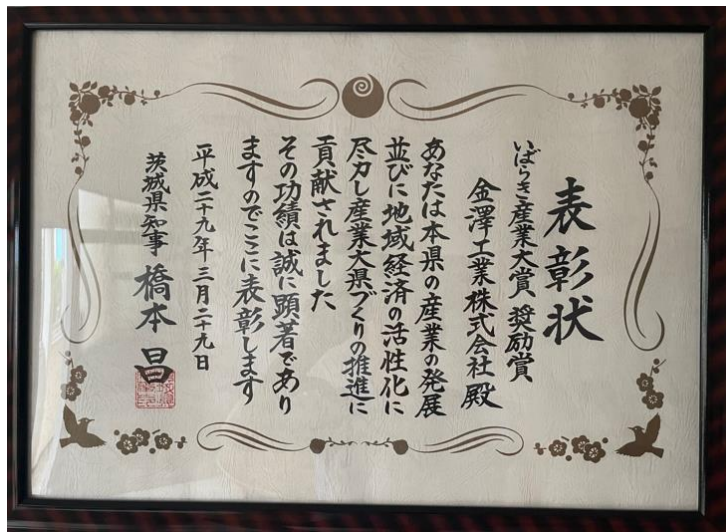 表彰状
いばらき産業大賞 奨励賞
金澤工業株式会社 殿
あなたは本県の産業の発展
並びに地域経済の活性化に
尽力し産業大県づくりの推進に
貢献されました
その功績は誠に顕著であり
ますのでここに表彰します
平成二十九年三月二十九日
茨城県知事 橋本 昌